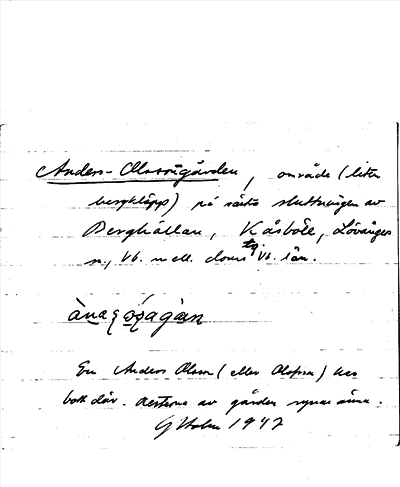 Anders-Olsongården, område (liten
bergklapp) på västra sluttningen av
Berghällan, Kåsböle, Lövångers
sn, Vb. mell. doms tg Vb. län.
En Anders Olson (eller Olofson) har
bott där. Resterna av gården synas ännu.
G Holm 1947